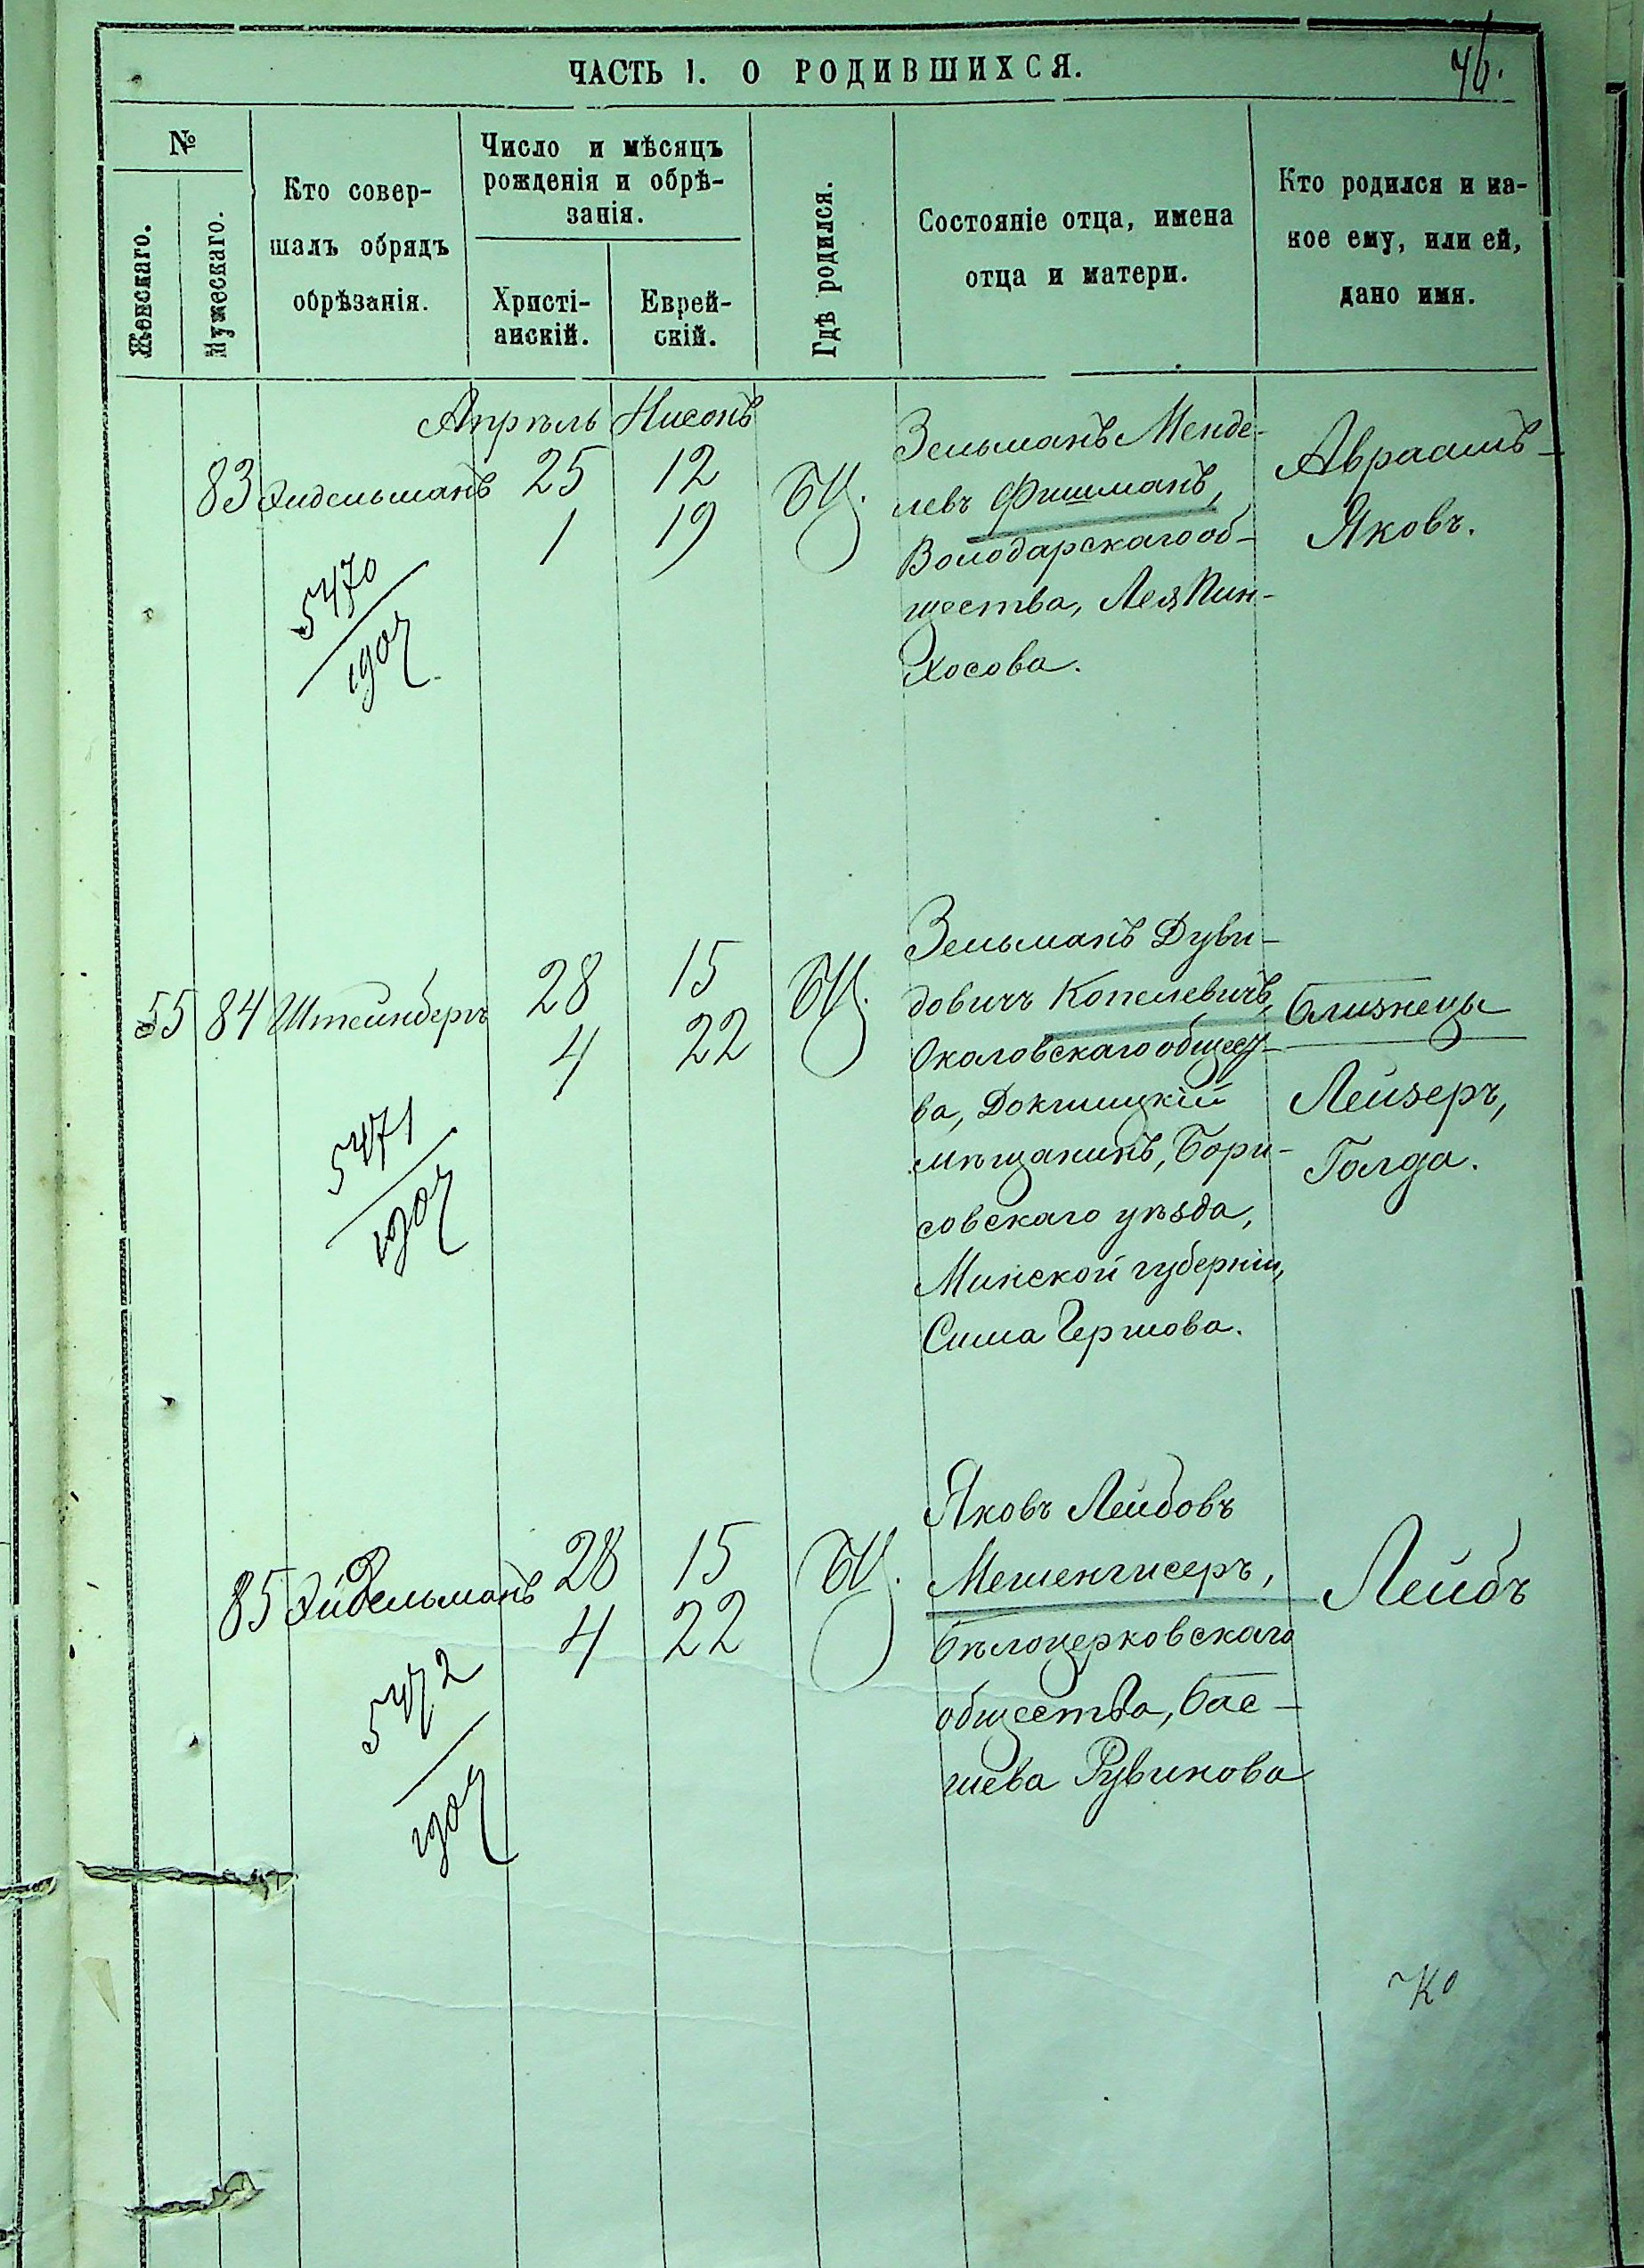 ЧАСТЬ I. О РОДИВШИХСЯ.
76.
№
Женскаго.
Мужескаго.
Кто совер-
шалъ обрядъ
обрѣзанія.
Число и мѣсяцъ
рожденія и обрѣ-
занія.
Христі-
анскій.
Еврей-
скій.
Гдѣ родился.
Состояніе отца, имена
отца и матери.
Кто родился и ка-
кое ему, или ей,
дано имя.
Апрѣль Нисонъ
83 Эйдельманъ 25 12 БЦ.
1 19
5470
1904
Зельманъ Менде-
левъ Фишманъ,
Володарскаго об-
щества, Лея Пин-
хосова.
Авраамъ-
Яковъ.
55 84 Штейнбергъ 28 15 БЦ.
4 22
5471
1904
Зельманъ Дуви-
довичъ Копелевичъ,
Околовскаго общест-
ва, Докшицкій
мѣщанинъ, Бори-
совскаго уѣзда,
Минской губерніи,
Сима Гершова.
Близнецы
Лейзеръ,
Голда.
85 Эйдельманъ 28 15 БЦ.
4 22
5472
1904
Яковъ Лейбовъ
Мешенгисеръ,
Бѣлоцерковскаго
общества, Бас-
шева Рувинова
Лейбъ